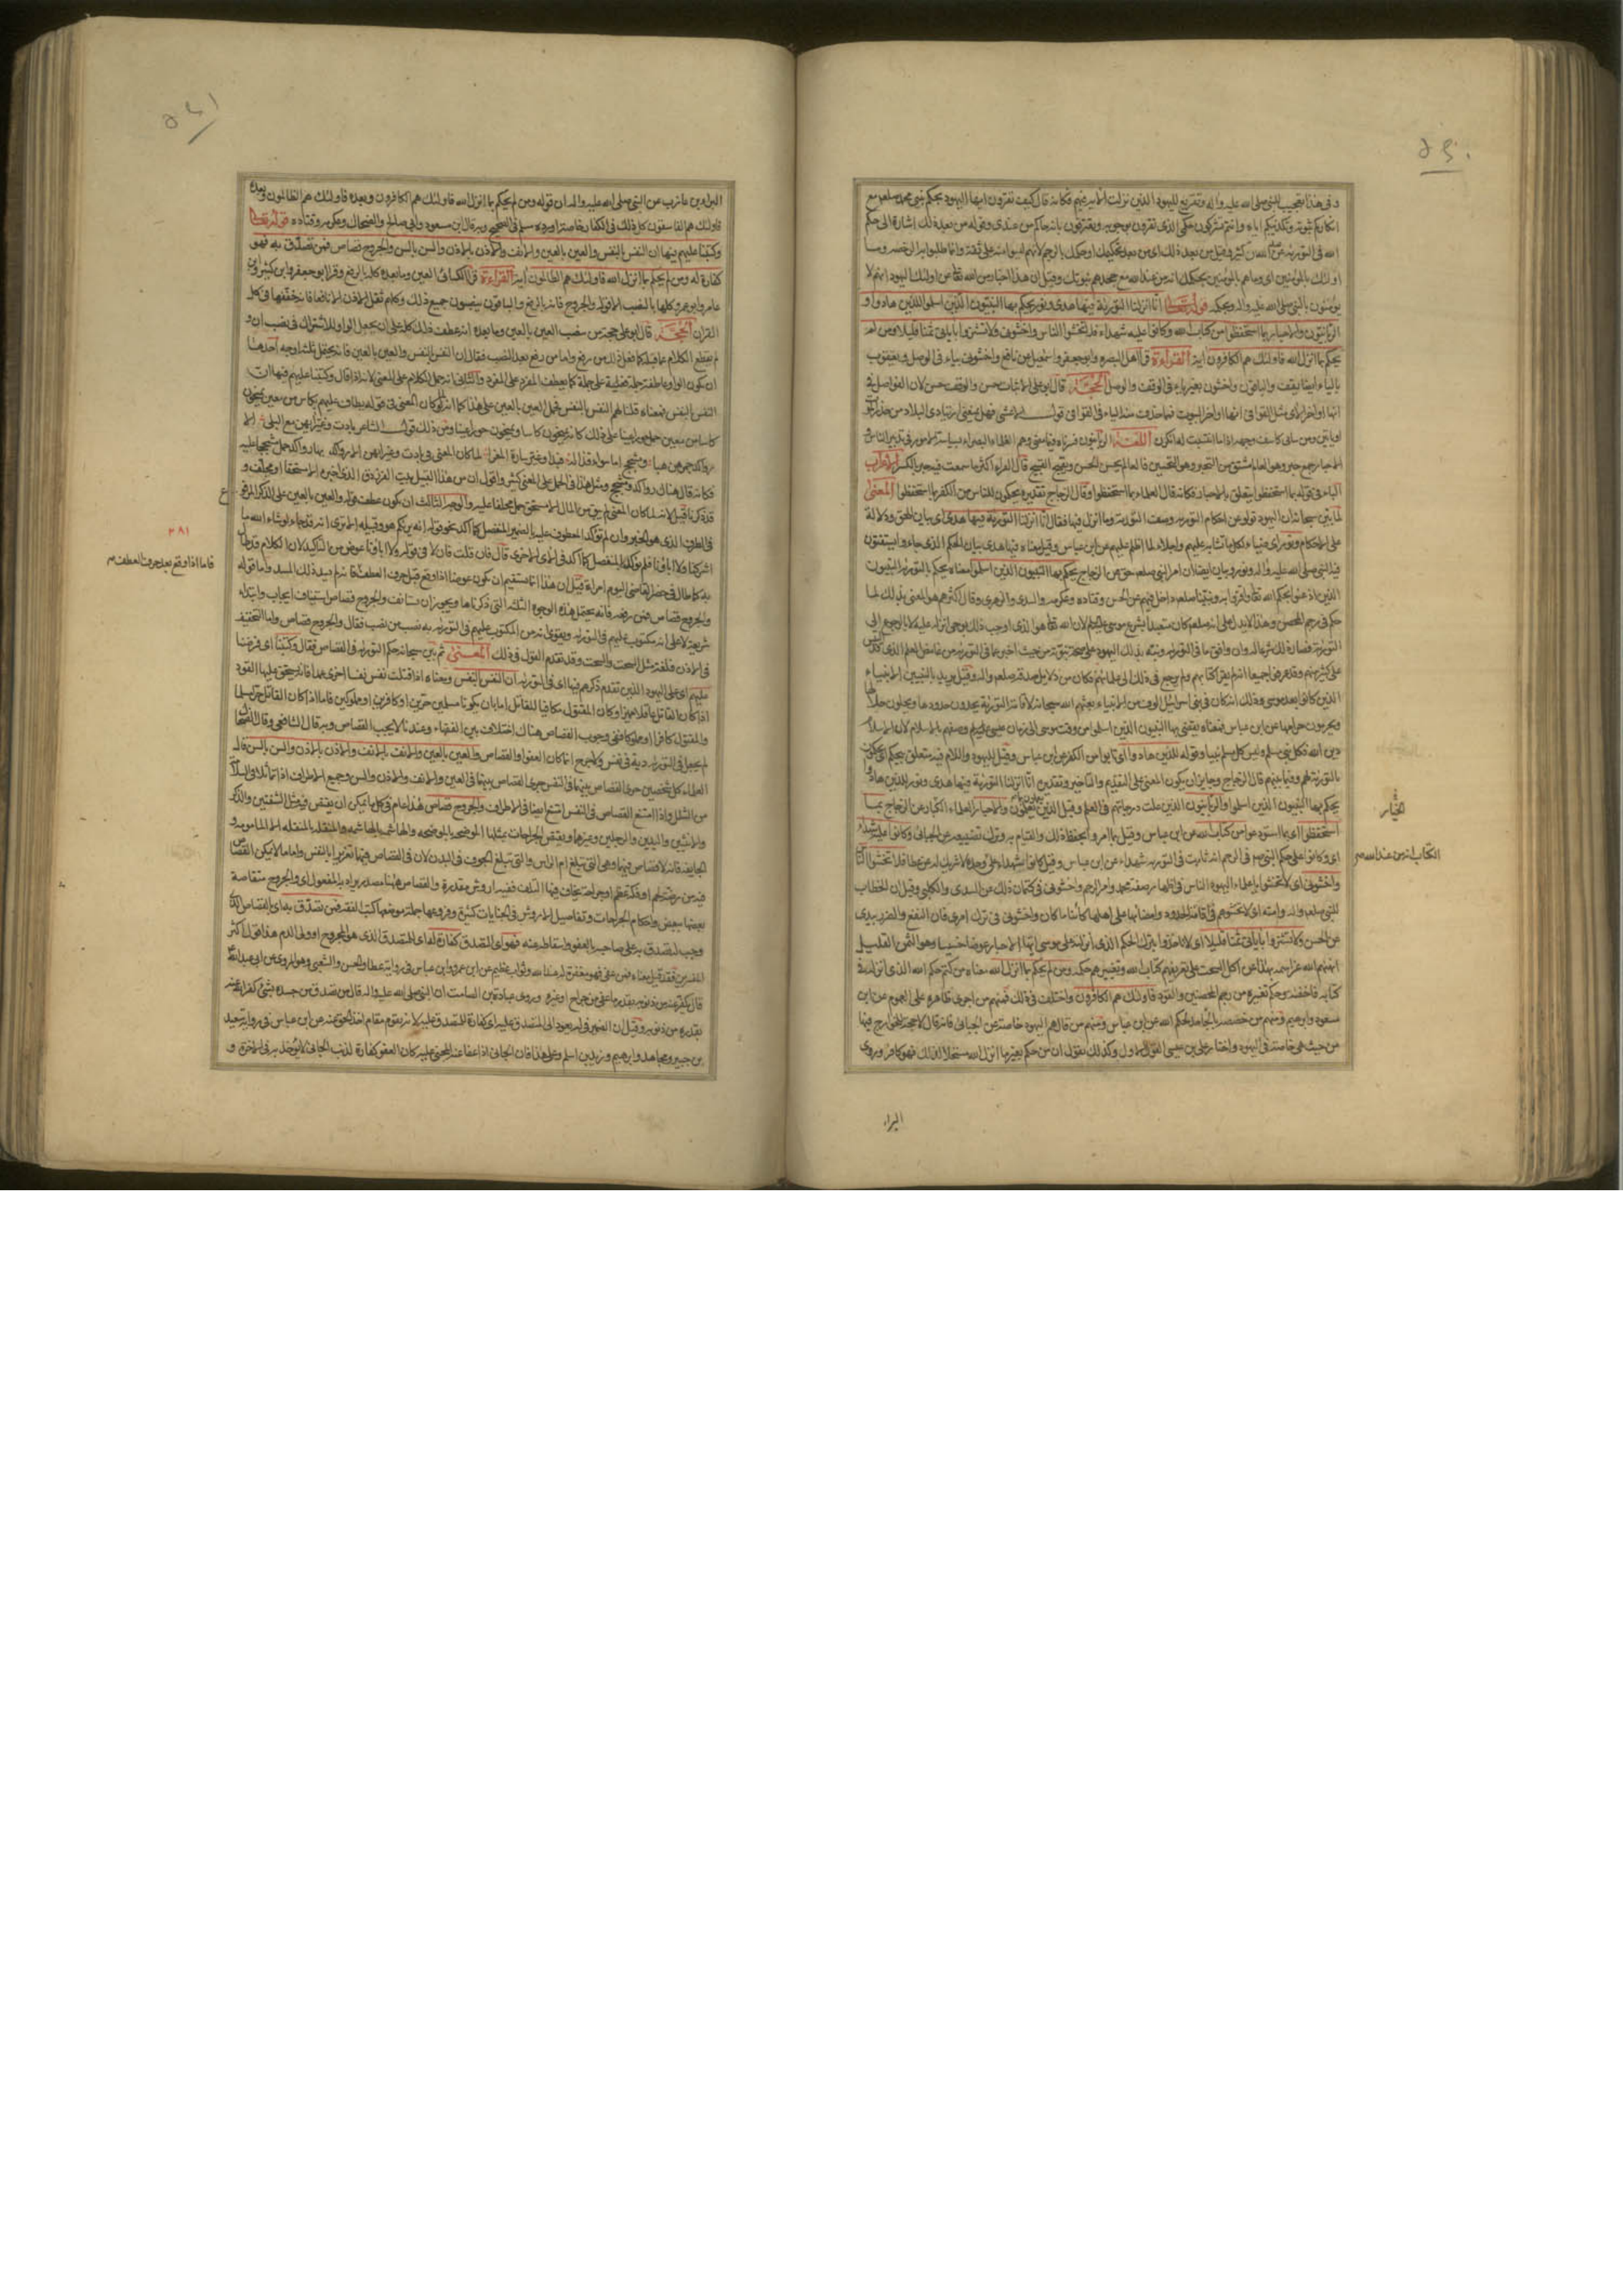 و فى هذا تعجيب للنبى صلى الله عليه واله وتقريع لليهود الذين نزلت الاية فيهم فكانه قال كيف تقرون ايها اليهود بحكم نبيى محمد صلعم مع
انكاركم نبوته وتكذيبكم اياه وانتم تتركون حكمى الذى تقرون بوجوبه وتعترفون بانه جاءكم من عندى وقوله من بعد ذلك اشارة الى حكم
الله فى التورية عن عبد الله بن كثير وقيل من بعد ذلك اى من بعد تحكيمك او حكمك بالرجم لانهم ليسوا منه على ثقة وانما طلبوا به الرخصة وما
اولئك بالمؤمنين اى وما هم بالمؤمنين بحكمك انه من عند الله مع جحدهم نبوتك وقيل ان هذا اخبار من الله تعالى عن اولئك اليهود انهم لا
يؤمنون بالنبى صلى الله عليه واله وبحكمه قوله تعالى انا انزلنا التورية فيها هدى ونور يحكم بها النبيون الذين اسلموا للذين هادوا و
الربانيون والاحبار بما استحفظوا من كتاب الله وكانوا عليه شهداء فلا تخشوا الناس واخشونى ولا تشتروا باياتى ثمنا قليلا ومن لم
يحكم بما انزل الله فاولئك هم الكافرون اية القراءة قرأ اهل البصره وابو جعفر واسمعيل عن نافع واخشونى بياء فى الوصل ويعقوب
بالياء ايضا يقف والباقون واخشون بغير ياء فى الوقف والوصل الحجة قال ابو على الاثبات حسن والوقف حسن لان الفواصل فى
انها اواخر الاى مثل القوافى فى انها اواخر البيوت فما حذفت منه الياء فى القوافى قول الاعشى فهل يمنعنى ارتيادى البلاد من حذر الموت
ان ياتين ومن شانى كاسف وجهه اذا ما انتسبت له انكرن اللغة الربانيون فسرناه فيما مضى وهم العلماء البصراء بسياسة الامور وتدبير الناس
الاحبار جمع حبر وهو العالم مشتق من التحبير وهو التحسين فالعالم يحسن الحسن ويقبح القبيح قال الفراء اكثر ما سمعت فيه حبر بالكسر الاعراب
الباء فى قوله بما استحفظوا يتعلق بالاحبار فكانه قال العلماء بما استحفظوا وقال الزجاج تقديره يحكمون للتائبين من الكفر بما استحفظوا المعنى
لما بين سبحانه ان اليهود تولوا عن احكام التورية وصف التورية وما انزل فيها فقال انا انزلنا التورية فيها هدى اى بيان للحق ودلالة
على الاحكام ونور اى ضياء لكل ما تشابه عليهم وجلاء لما اظلم عليهم عن ابن عباس وقيل معناه فيها هدى بيان الحكم الذى جاءوا يستفتون
فيه النبى صلى الله عليه واله ونور وبيان ان امر النبى صلعم حق عن الزجاج يحكم بها النبيون الذين اسلموا معناه يحكم بالتورية النبيون
الذين اذعنوا لحكم الله تعالى واقروا به ونبينا صلعم داخل فيهم عن الحسن وقتاده وعكرمه والسدى والزهرى وقال اكثرهم هو المعنى بذلك لما
حكم فى رجم المحصن وهذا لا يدل على انه صلعم كان متعبدا بشرع موسى عليه السلام لان الله تعالى هو الذى اوجب ذلك بوحى انزله عليه لا بالرجوع الى
التورية فصار ذلك شرعا له وان وافق ما فى التورية ونبه بذلك اليهود على صحة نبوته من حيث اخبر بما فى التورية من غامض العلم الذى قد التبس
على كثير منهم وقد عرفوا جميعا انه لم يقرأ كتابهم ولم يرجع فى ذلك الى علمائهم فكان من دلايل صدقه صلعم واله وقيل يريد بالنبيين الانبياء
الذين كانوا بعد موسى وذلك انه كان فى بنى اسرائيل الوف من الانبياء بعثهم الله سبحانه لاقامة التورية يحدون حدودها ويحلون حلالها
ويحرمون حرامها عن ابن عباس فمعناه يقضى بها النبيون الذين اسلموا من وقت موسى الى زمان عيسى وصفهم بالاسلام لان الاسلام
دين الله فكل نبى مسلم وليس كل مسلم نبيا وقوله للذين هادوا اى تابوا من الكفر عن ابن عباس وقيل لليهود واللام فيه متعلق بيحكم اى يحكمون
بالتورية لهم وفيما بينهم قال الزجاج وجايز ان يكون المعنى على التقديم والتاخير وتقديره انا انزلنا التورية فيها هدى ونور للذين هادوا
يحكم بها النبيون الذين اسلموا والربانيون الذين علت درجاتهم فى العلم وقيل الذين يعلمون والاحبار العلماء الكبار عن الزجاج بما
استحفظوا اى بما استودعوا من كتاب الله عن ابن عباس وقيل بما امروا بحفظ ذلك والقيام به وترك تضييعه عن الجبائى وكانوا عليه شهداء
اى وكانوا على حكم النبى صلعم فى الرجم انه ثابت فى التورية شهداء عن ابن عباس وقيل كانوا شهداء على وحده لا شريك له عن عطا فلا تخشوا الناس
واخشونى اى لا تخشوا يا علماء اليهود الناس فى اظهار صفة محمد وامر الرجم واخشونى فى كتمان ذلك عن السدى والكلبى وقيل ان الخطاب
للنبى صلعم واله وامته اى لا تخشوهم فى اقامة الحدود وامضائها على اهلها كائنا ما كان واخشونى فى ترك امرى فان النفع والضر بيدى
عن الحسن ولا تشتروا باياتى ثمنا قليلا اى لا تاخذوا بترك الحكم الذى انزلته على موسى ايها الاحبار عوضا خسيسا وهو الثمن القليل
نهاهم الله عز اسمه بهذا عن اكل السحت على تحريفهم كتاب الله وتغييرهم حكمه ومن لم يحكم بما انزل الله معناه من كتم حكم الله الذى انزله فى
كتابه فاخفاه وحكم بغيره من رجم المحصنين والقود فاولئك هم الكافرون واختلف فى ذلك فمنهم من اجرى ظاهره على العموم عن ابن
مسعود وابرهيم ومنهم من خصصه بالجاحد لحكم الله عن ابن عباس ومنهم من قال هم اليهود خاصة عن الجبائى فانه قال لا حجة للخوارج فيها
من حيث هى خاصة فى اليهود واختار على بن عيسى القول الاول وكذلك نقول ان من حكم بغير ما انزل الله مستحلا لذلك فهو كافر وروى
البراء
الكتاب انه من عند الله صح
البراء بن عازب عن النبى صلى الله عليه واله ان قوله ومن لم يحكم بما انزل الله فاولئك هم الكافرون وبعده فاولئك هم الظالمون وبعده
فاولئك هم الفاسقون كل ذلك فى الكفار خاصة اورده مسلم فى الصحيح وبه قال ابن مسعود وابى صالح والضحاك وعكرمه وقتاده قوله تعالى
وكتبنا عليهم فيها ان النفس بالنفس والعين بالعين والانف بالانف والاذن بالاذن والسن بالسن والجروح قصاص فمن تصدق به فهو
كفارة له ومن لم يحكم بما انزل الله فاولئك هم الظالمون اية القراءة قرأ الكسائى العين وما بعده كله بالرفع وقرأ ابو جعفر وابن كثير وابن
عامر وابو عمرو كلها بالنصب الا قوله والجروح فانه بالرفع والباقون ينصبون جميع ذلك وكلهم ثقل الاذن الا نافعا فانه خففها فى كل
القران الحجة قال ابو على حجة من نصب العين بالعين وما بعده انه عطف ذلك كله على ان يجعل الواو للاشتراك فى نصب ان و
لم يقطع الكلام عما قبله كما فعل ذلك من رفع واما من رفع بعد النصب فقال ان النفس بالنفس والعين بالعين فانه يحتمل ثلثة اوجه احدها
ان يكون الواو عاطفة جملة على جملة كما يعطف المفرد على المفرد والثانى انه حمل الكلام على المعنى لانه اذا قال وكتبنا عليهم فيها ان
النفس بالنفس فمعناه قلنا لهم النفس بالنفس فحمل العين بالعين على هذا كما انه لما كان المعنى فى قوله يطاف عليهم بكاس من معين يمنحون
كاسا من معين حمل حورا عينا على ذلك كانه يمنحون كاسا ويمنحون حورا عينا ومن ذلك قول الشاعر بادت وغير ايهن مع البلى الا
رواكد جمرهن هباء ومشجج اما سواء قذاله فبدا وغير ساره المعزاء لما كان المعنى فى بادت وغير ايهن الا رواكد بها رواكد حمل مشجج عليه
فكانه قال هناك رواكد ومشجج ومثل هذا فى الحمل على المعنى كثير واقول ان من هذا القبيل بيت الفرزدق الذى اخره الا مسحتا او مجلف و
قد ذكرناه قبل لانه لما كان المعنى لم يبق من المال الا مسحت حمل مجلف عليه والوجه الثالث ان يكون عطف قوله والعين بالعين على الذكر المرفوع
فى الظرف الذى هو الخبر وان لم يؤكد المعطوف عليه بالضمير المنفصل كما اكد نحو قوله انه يريكم هو وقبيله الا ترى انه قد جاء لو شاء الله ما
اشركنا ولا اباؤنا فلم يؤكد بالمنفصل كما اكد فى الاى الاخرى قال فان قلت فان لا فى قوله ولا اباؤنا عوض من التاكيد لان الكلام قد طال
به كما طال فى حضر القاضى اليوم امراة قيل ان هذا انما يستقيم ان يكون عوضا اذا وقع قبل حرف العطف فانه لم يسد ذلك المسد واما قوله
والجروح قصاص فمن رفعه فانه يحتمل هذه الوجوه الثلثة التى ذكرناها ويجوز ان يستانف والجروح قصاص استيناف ايجاب وابتداء
شريعة لا على انه مكتوب عليهم فى التورية ويقوى انه من المكتوب عليهم فى التورية به نصب من نصب فقال والجروح قصاص واما التخفيف
فى الاذن فلغة مثل السحت والسحت وقد تقدم القول فى ذلك المعنى ثم بين سبحانه حكم التورية فى القصاص فقال وكتبنا اى فرضنا
عليهم اى على اليهود الذين تقدم ذكرهم فيها اى فى التورية ان النفس بالنفس ومعناه اذا قتلت نفس نفسا اخرى عمدا فانه يستحق عليها القود
اذا كان القاتل عاقلا مميزا وكان المقتول مكافيا للقاتل اما بان يكونا مسلمين حرين او كافرين او مملوكين فاما اذا كان القاتل حرا مسلما
والمقتول كافرا او مملوكا ففى وجوب القصاص هناك اختلاف بين الفقهاء وعندنا لا يجب القصاص وبه قال الشافعى وقال الضحاك
لم يجعل فى التورية دية فى نفس ولا جرح انما كان العفو او القصاص والعين بالعين والانف بالانف والاذن بالاذن والسن بالسن قال
العلماء كل شخصين جرى القصاص بينهما فى النفس جرى القصاص بينهما فى العين والانف والاذن والسن وجميع الاطراف اذا تماثلا فى السلامة
من الشلل واذا امتنع القصاص فى النفس امتنع ايضا فى الاطراف والجروح قصاص هذا عام فى كل ما يمكن ان يقتص فيه مثل الشفتين والذكر
والانثيين واليدين والرجلين وغيرها ويقتص الجراحات بمثلها الموضحه بالموضحه والهاشمه بالهاشمه والمنقله بالمنقله الا المامومه و
الجايفه فانه لا قصاص فيهما وهى التى تبلغ ام الراس والتى تبلغ الجوف فى البدن لان فى القصاص فيهما تغريرا بالنفس واما ما لا يمكن القصاص
فيه من رضة لحم او فكة عظم او جراحة يخاف فيها التلف ففيه اروش مقدرة والقصاص هاهنا مصدر يراد به المفعول اى والجروح متقاصة
بعضها ببعض واحكام الجراحات وتفاصيل الاروش فى الجنايات كثيرة وفروعها جمة موضعها كتب الفقه فمن تصدق به اى بالقصاص الذى
وجب له تصدق به على صاحبه بالعفو واسقاطه عنه فهو اى التصدق كفارة له اى للمتصدق الذى هو المجروح او ولى الدم هذا قول اكثر
المفسرين فقد قيل معناه فمن عفى فهو مغفرة له عند الله وثواب عظيم عن ابن عمر وابن عباس فى رواية عطا والحسن والشعبى وهو المروى عن ابى عبد الله
قال يكفر عنه من ذنوبه بقدر ما عفى من جراح او غيره وروى عبادة بن الصامت ان النبى صلى الله عليه واله قال من تصدق من جسده بشىء كفر الله عنه
بقدره من ذنوبه وقيل ان الضمير فى له يعود الى المتصدق عليه اى كفارة للمتصدق عليه لانه يقوم مقام اخذ الحق عنه عن ابن عباس فى رواية سعيد
بن جبير ومجاهد وابرهيم وزيد بن اسلم وعلى هذا فان الجانى اذا عفا عنه المجنى عليه كان العفو كفارة لذنب الجانى لا يؤخذ به فى الاخرة و
٣٨١
فاما اذا وقع بعد حرف العطف صح